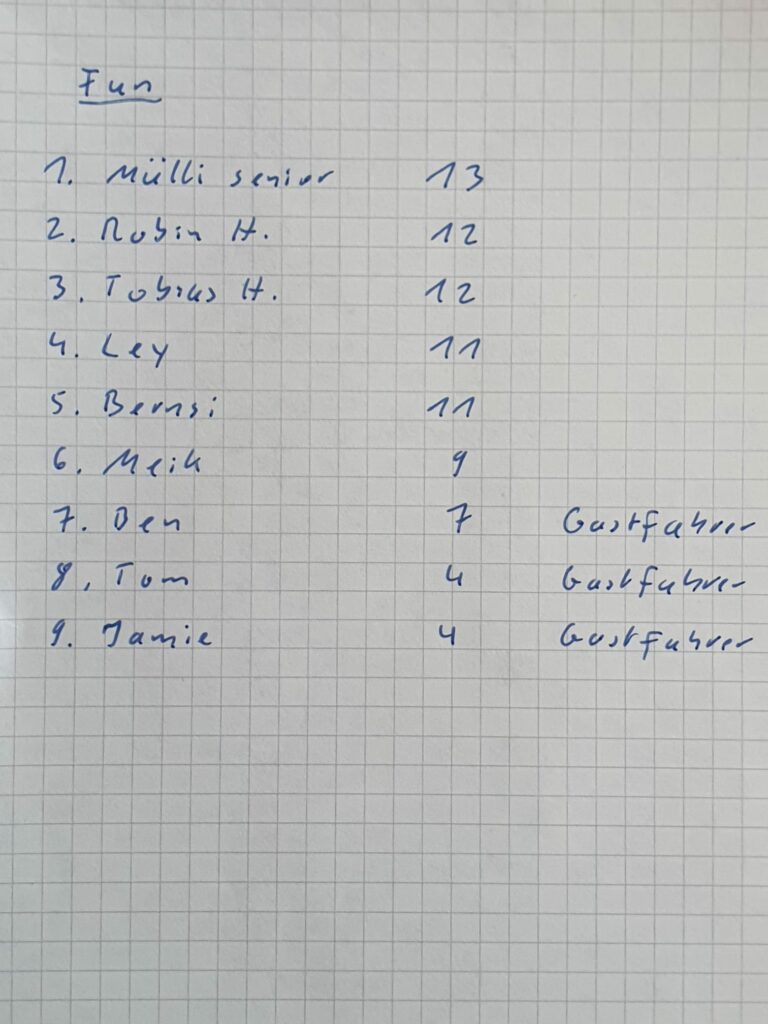 Fun
1. Mülli senior 13
2. Robin H. 12
3. Tobias H. 12
4. Ley 11
5. Bernsi 11
6. Meik 9
7. Ben 7 Gastfahrer
8. Tom 4 Gastfahrer
9. Jamie 4 Gastfahrer